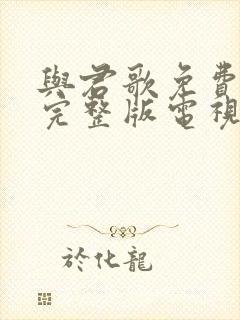 與君歌免費
完整版電視
於化龍